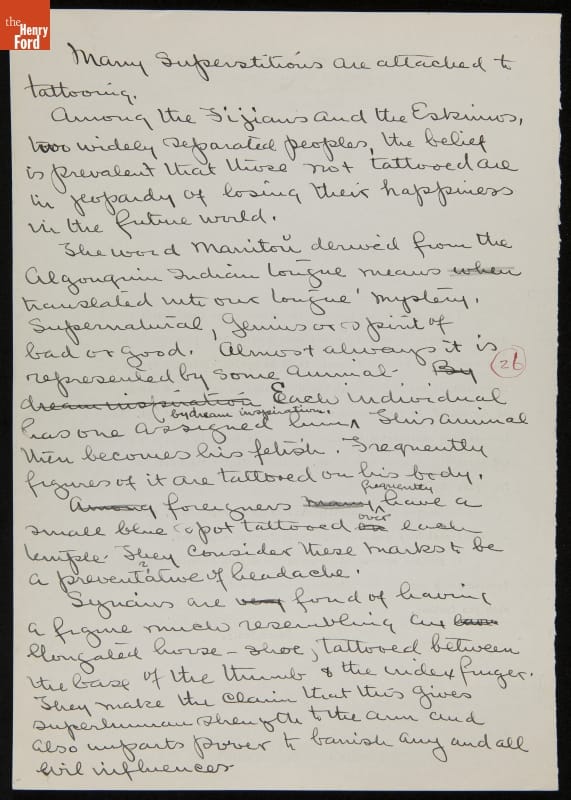 the
Henry
Ford
Many Superstitions are attached to
tattooing.
Among the Fijians and the Eskimos,
two widely separated peoples, the belief
is prevalent that those not tattooed are
in jeopardy of losing their happiness
in the future world.
The word Manitou derived from the
Algonquin Indian tongue means when
translated into our tongue 'mystery,
Supernatural, Genius or spirit of
bad or good. Almost always it is
represented by some animal. By
26
dream inspiration Each individual
by dream inspiration.
has one assigned him This animal
then becomes his fetish. Frequently
figures of it are tattooed on his body.
frequently
Among foreigners many have a
over
small blue spot tattooed on each
temple. They consider these marks to be
a preventative of headache.
Syrians are very fond of having
a figure much resembling an
Elongated horse-shoe, tattooed between
the base of the thumb & the index finger.
They make the claim that this gives
superhuman strength to the arm and
also imparts power to banish any and all
evil influences